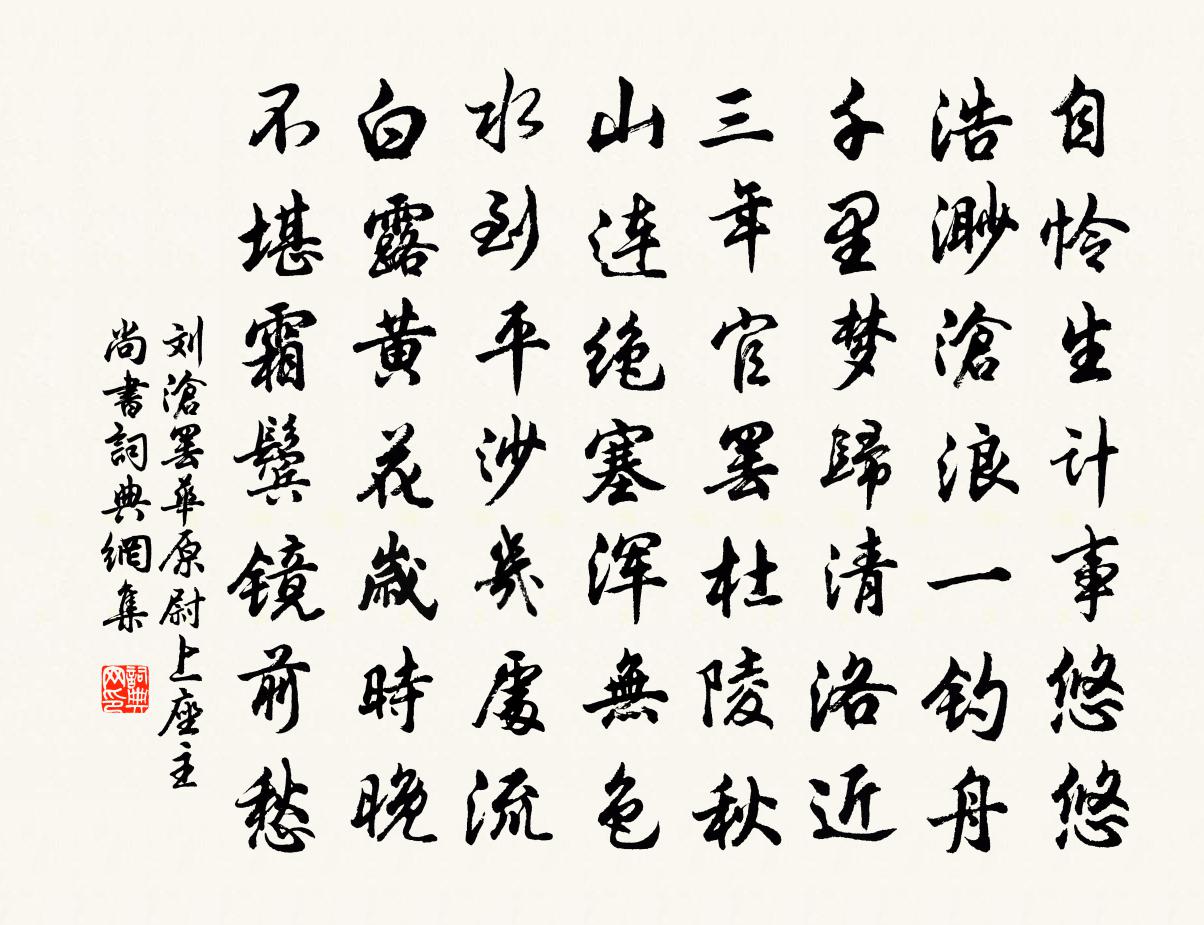 自怜生计事悠悠
浩渺沧浪一钓舟
千里梦歸清洛近
三年官罢杜陵秋
山连绝塞浑無色
水到平沙幾處流
白露黄花歲時晚
不堪霜鬓镜前愁
刘滄罢華原尉上座主
尚書詞典網集
詞典网印